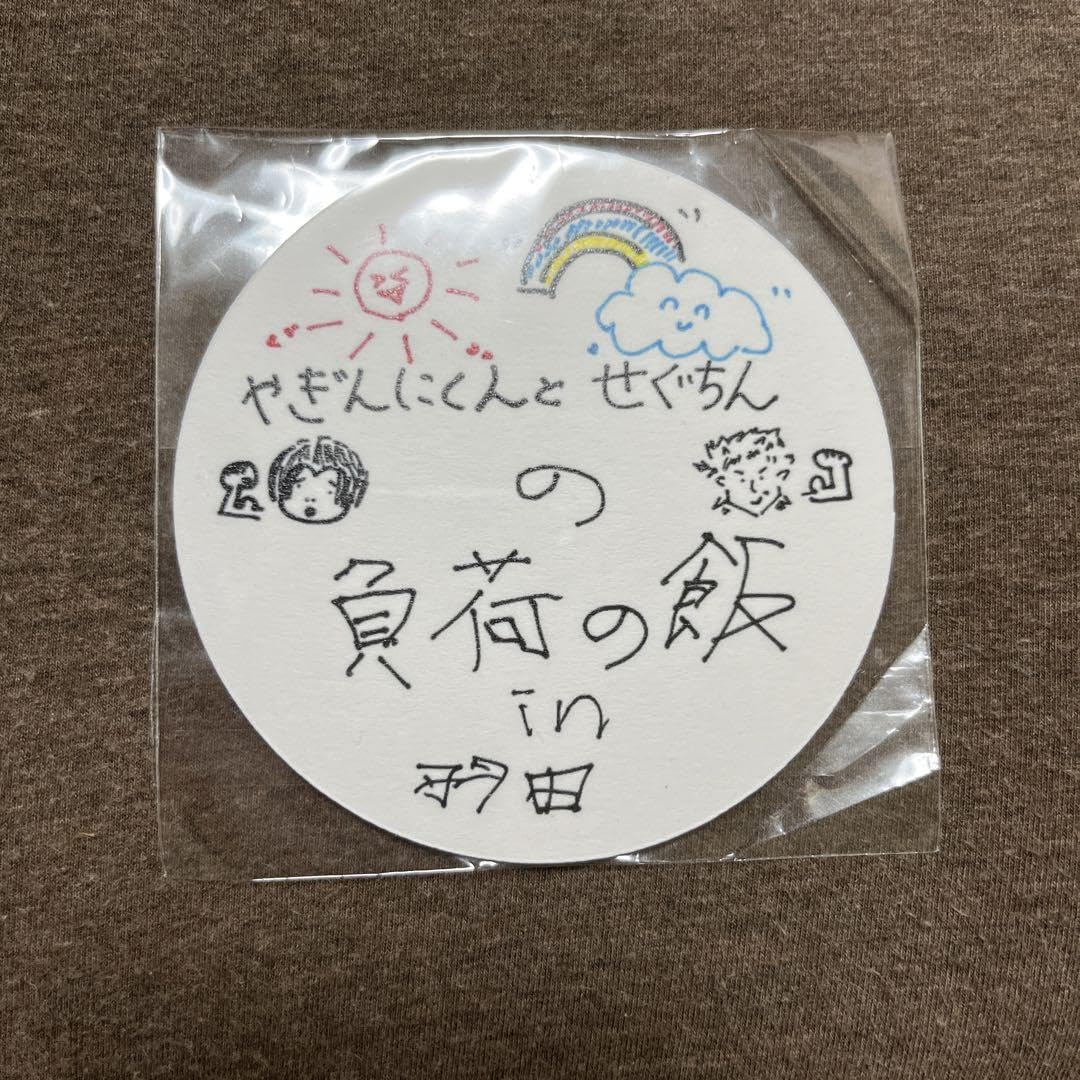 やぎんにくんと せぐちん
の
負荷の飯
in
羽田